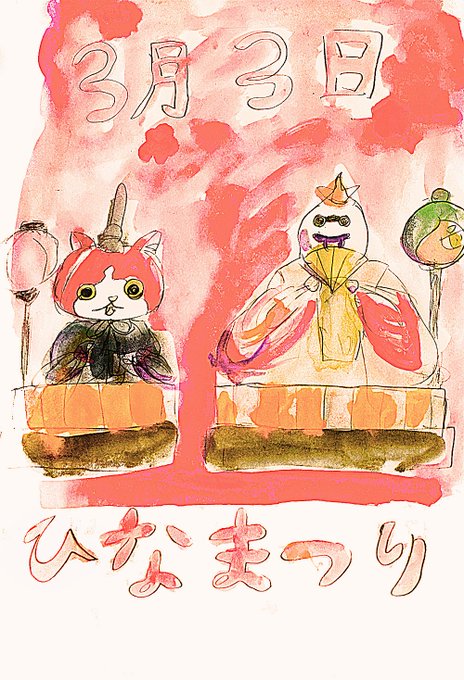 3月3日
ひなまつり